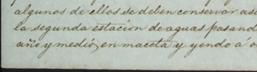 algunos de ellos se deben conservar ase
la segunda estacion de aguas pasand
año y medio, en maceta y yendo a o